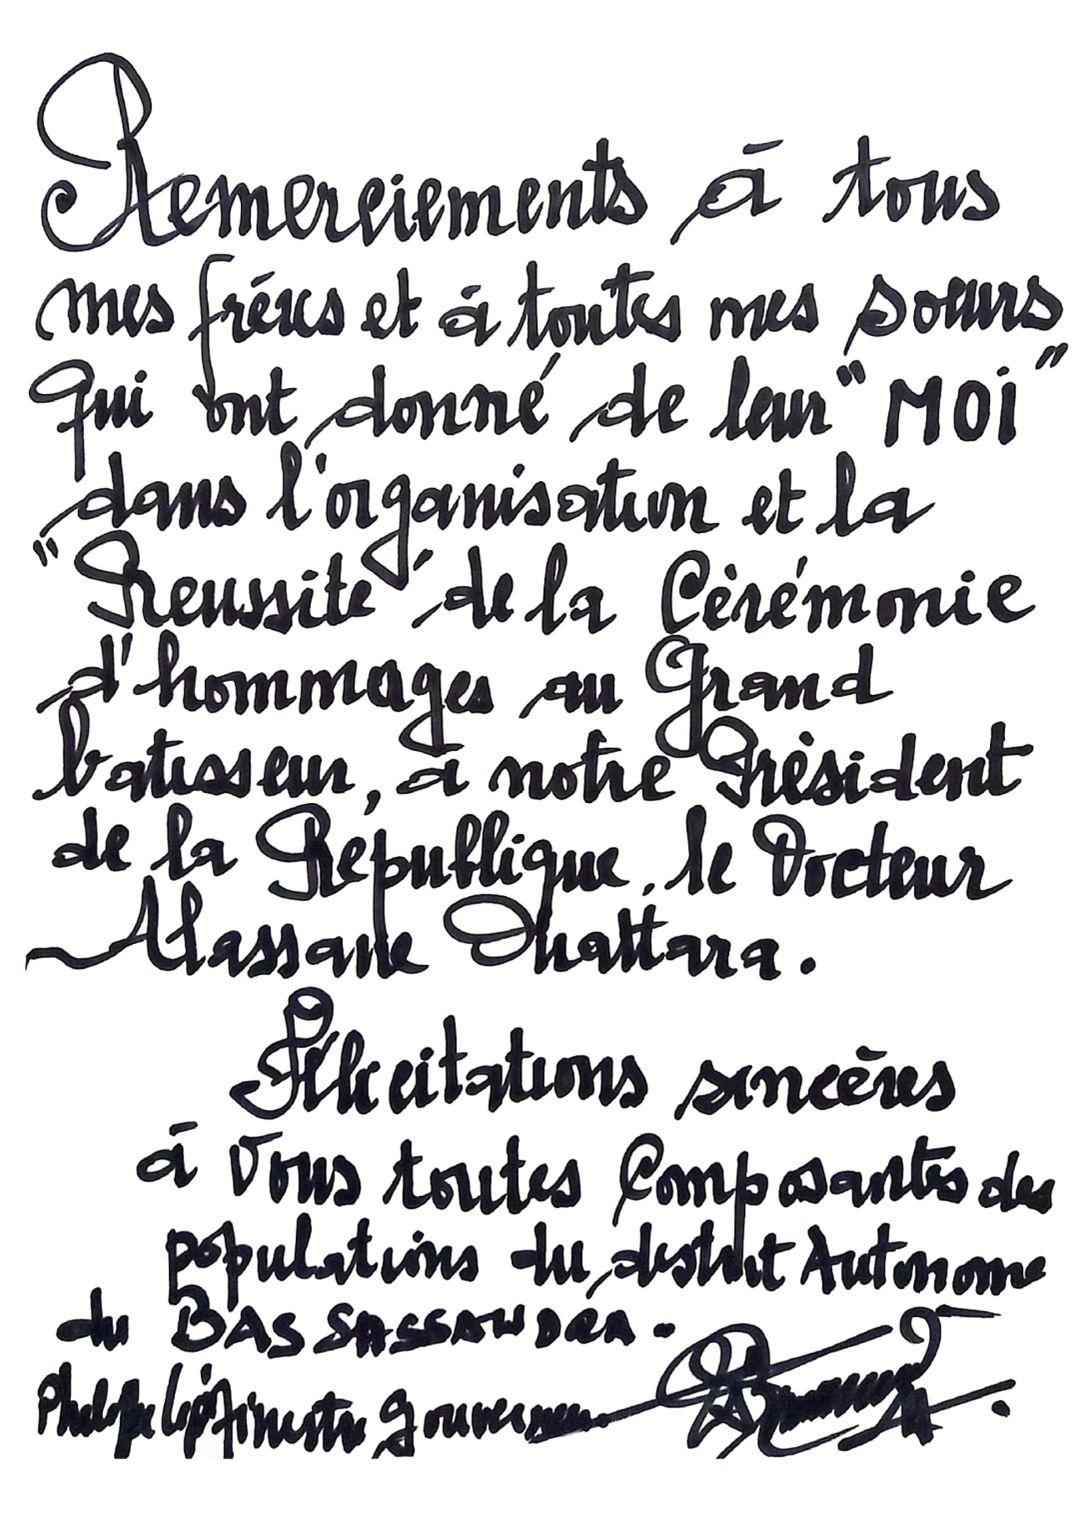 Remerciements à tous
mes fréres et à toutes mes soeurs
qui ont donné de leur "MOI"
dans l'organisation et la
"Reussite" de la Cérémonie
d'hommages au Grand
batisseur, à notre Président
de la République, le Docteur
Alassane Ouattara.
Félicitations sincères
à Vous toutes Composantes des
populations du district Autonome
du BAS SASSANDRA.
Philippe Légré ministre gouverneur